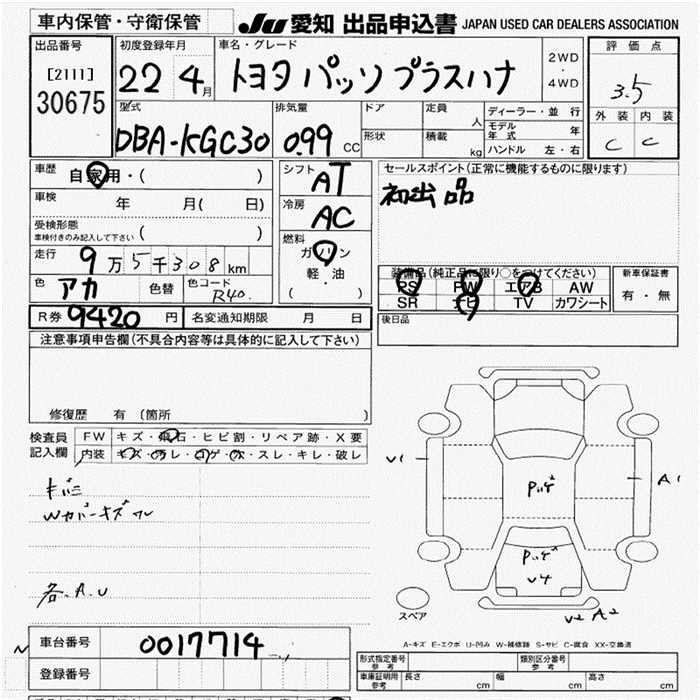 車内保管・守衛保管
JU 愛知 出品申込書 JAPAN USED CAR DEALERS ASSOCIATION
出品番号
[2111]
30675
初度登録年月
22 4月
車名・グレード
トヨタ パッソ プラスハナ
2WD
・
4WD
評価点
3.5
外装 内装
C C
型式
DBA-KGC30
排気量
0.99 CC
ドア
形状
定員 人
積載 kg
ディーラー・並行
モデル年式 年
ハンドル 左・右
車歴
自家用・( )
車検
年 月( 日)
受検形態
車検付きのみ記入して下さい ( )
走行
9万5千308km
色
アカ
色替
色コード
R40
シフト
AT
冷房
AC
燃料
ガソリン
軽・油
( )
セールスポイント(正常に機能するものに限ります)
初出品
装備品(純正品に限り○をつけてください)
PS PW エアB AW
SR ナビ TV カワシート
新車保証書
有・無
R券 9420 円
名変通知期限 月 日
後日品
注意事項申告欄(不具合内容等は具体的に記入して下さい)
修復歴 有 [箇所 ]
検査員
記入欄
FW キズ・飛石・ヒビ割・リペア跡・X要
内装 キズ・汚レ・コゲ・穴・スレ・キレ・破レ
Wカバーキズワレ
各.A.U
U1
A1
U4
U2 A2
スペア
A-キズ E-エクボ U-凹み W-補修跡 S-サビ C-腐食 XX-交換済
車台番号
0017714
登録番号
形式指定番号
参考
類別区分番号
参考
車庫証明用
参考
長さ cm 幅 cm 高さ cm